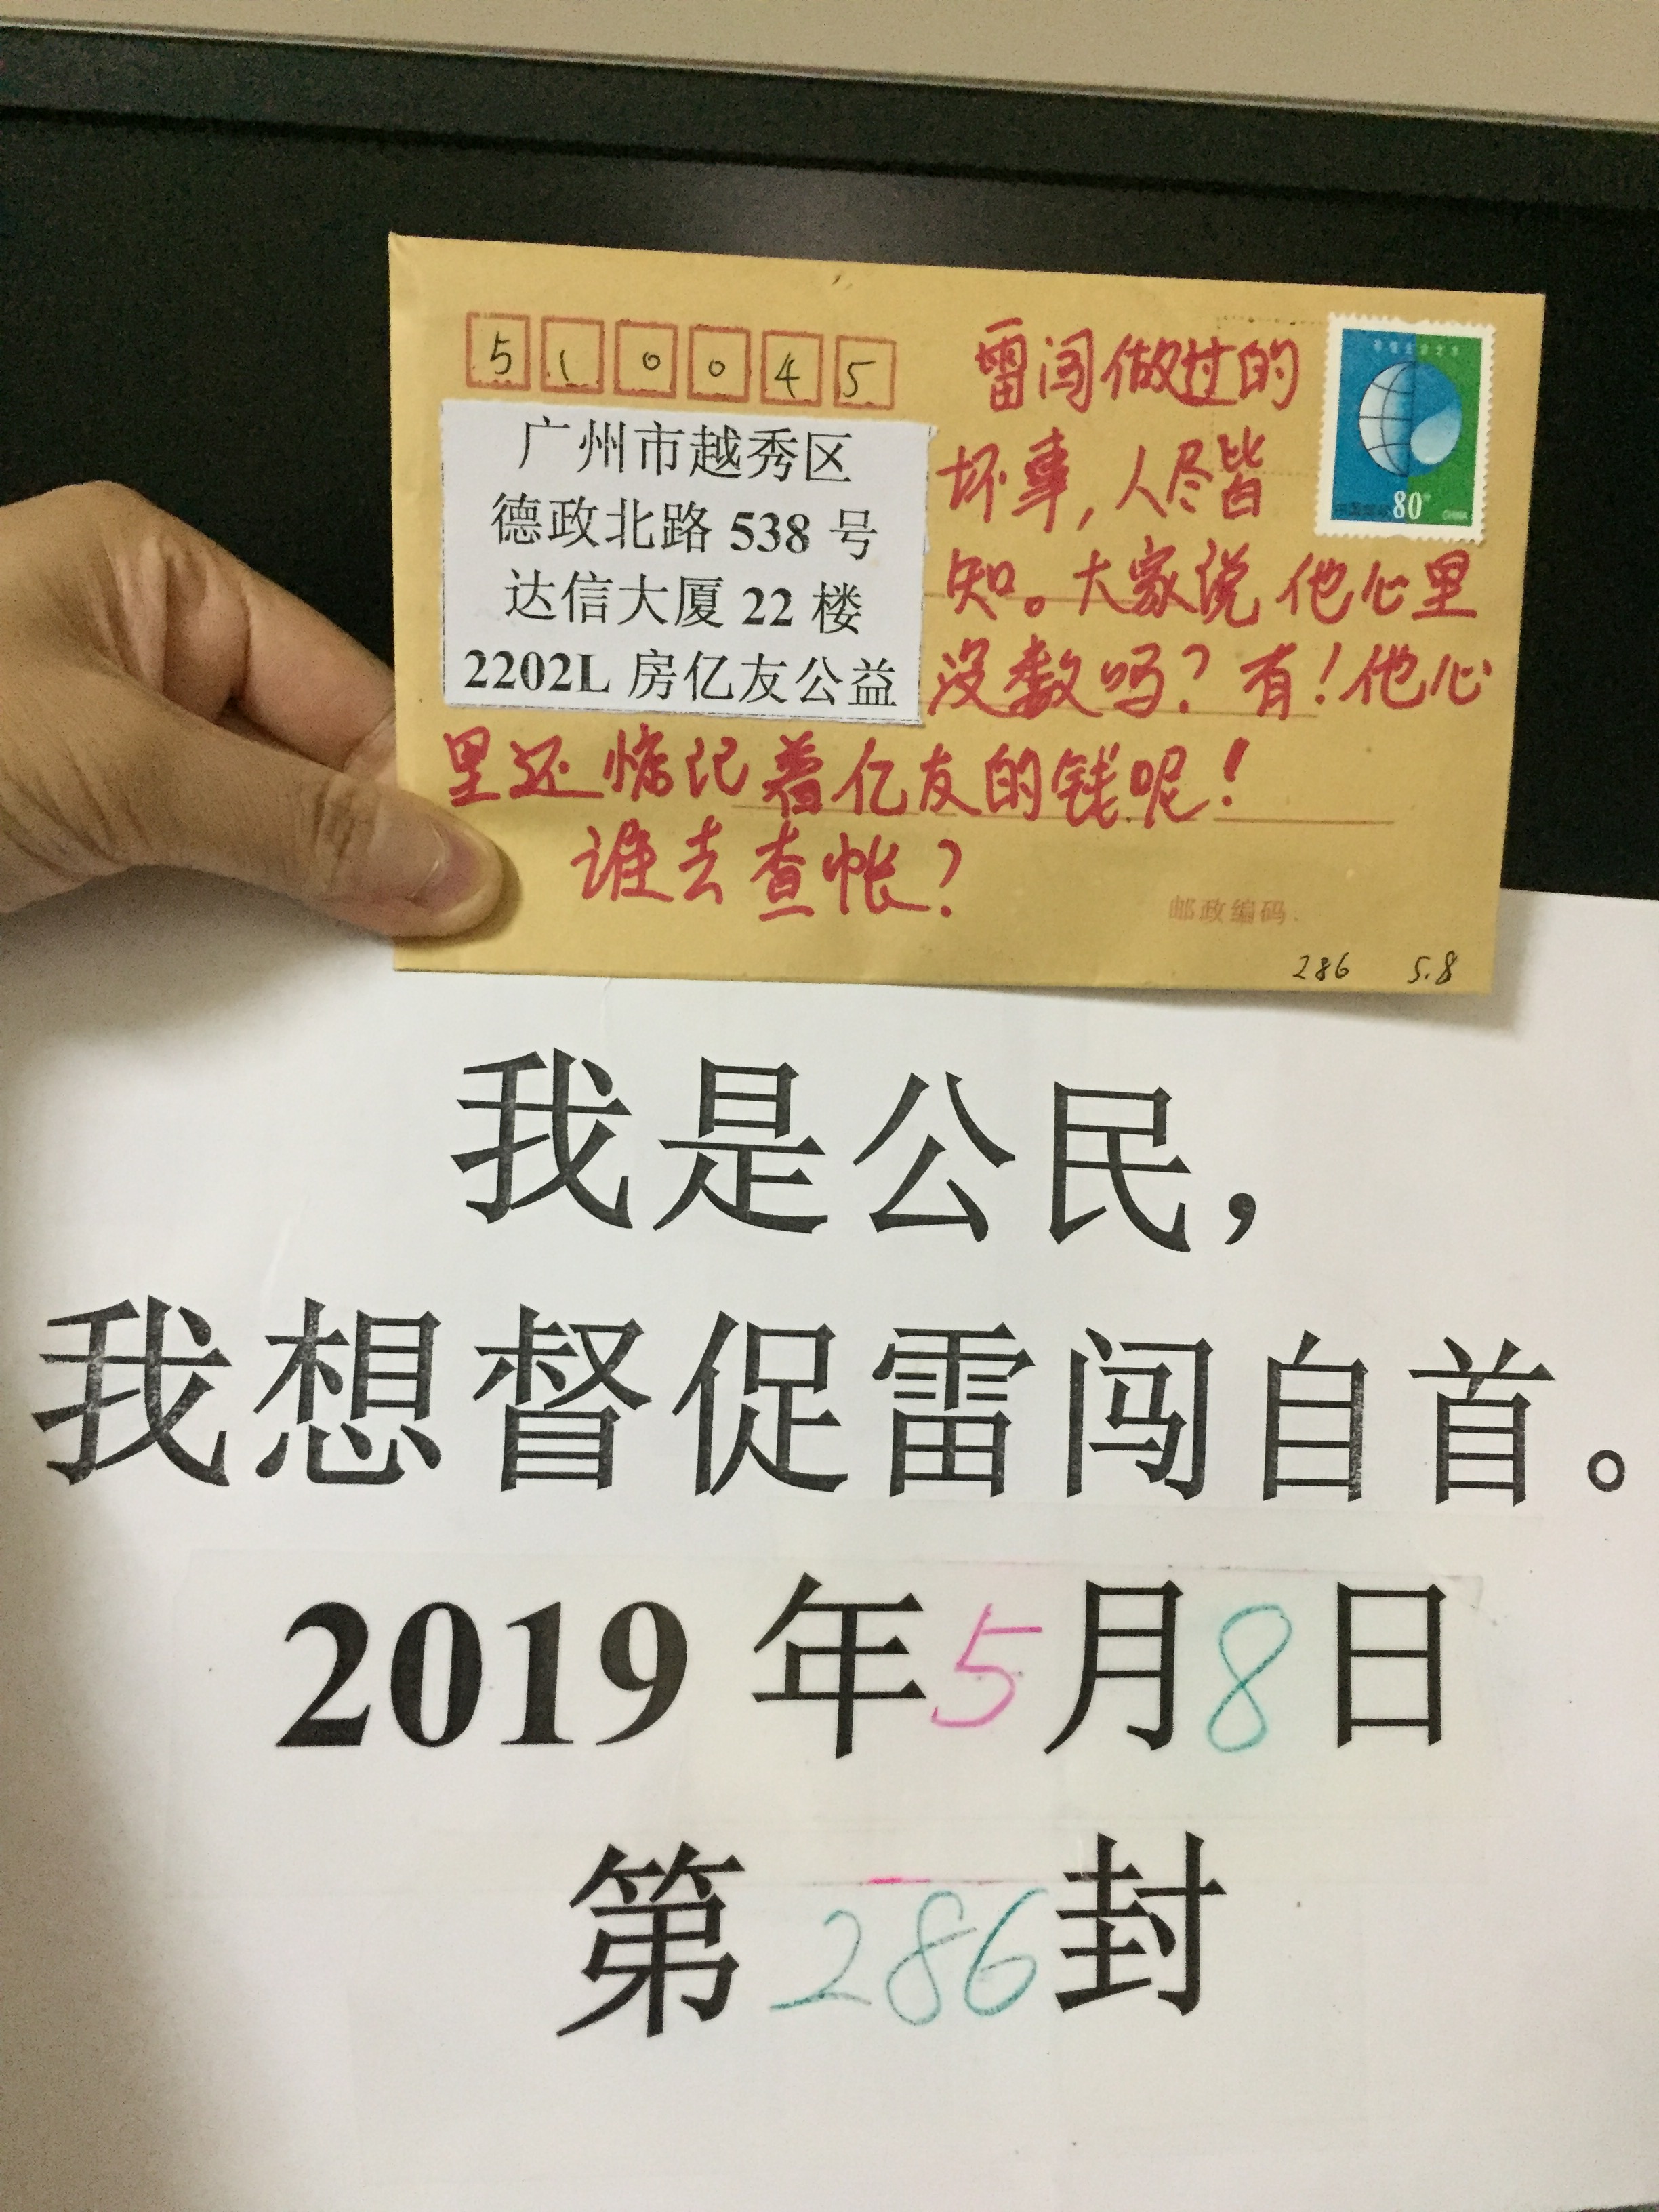 510045
广州市越秀区
德政北路 538 号
达信大厦 22 楼
2202L 房亿友公益
雷闯做过的
坏事,人尽皆
知。大家说他心里
没数吗?有!他心
里还惦记着亿友的钱呢!
谁去查帐?
80
CHINA
邮政编码
286 5.8
我是公民,
我想督促雷闯自首。
2019 年 5 月 8 日
第 286 封